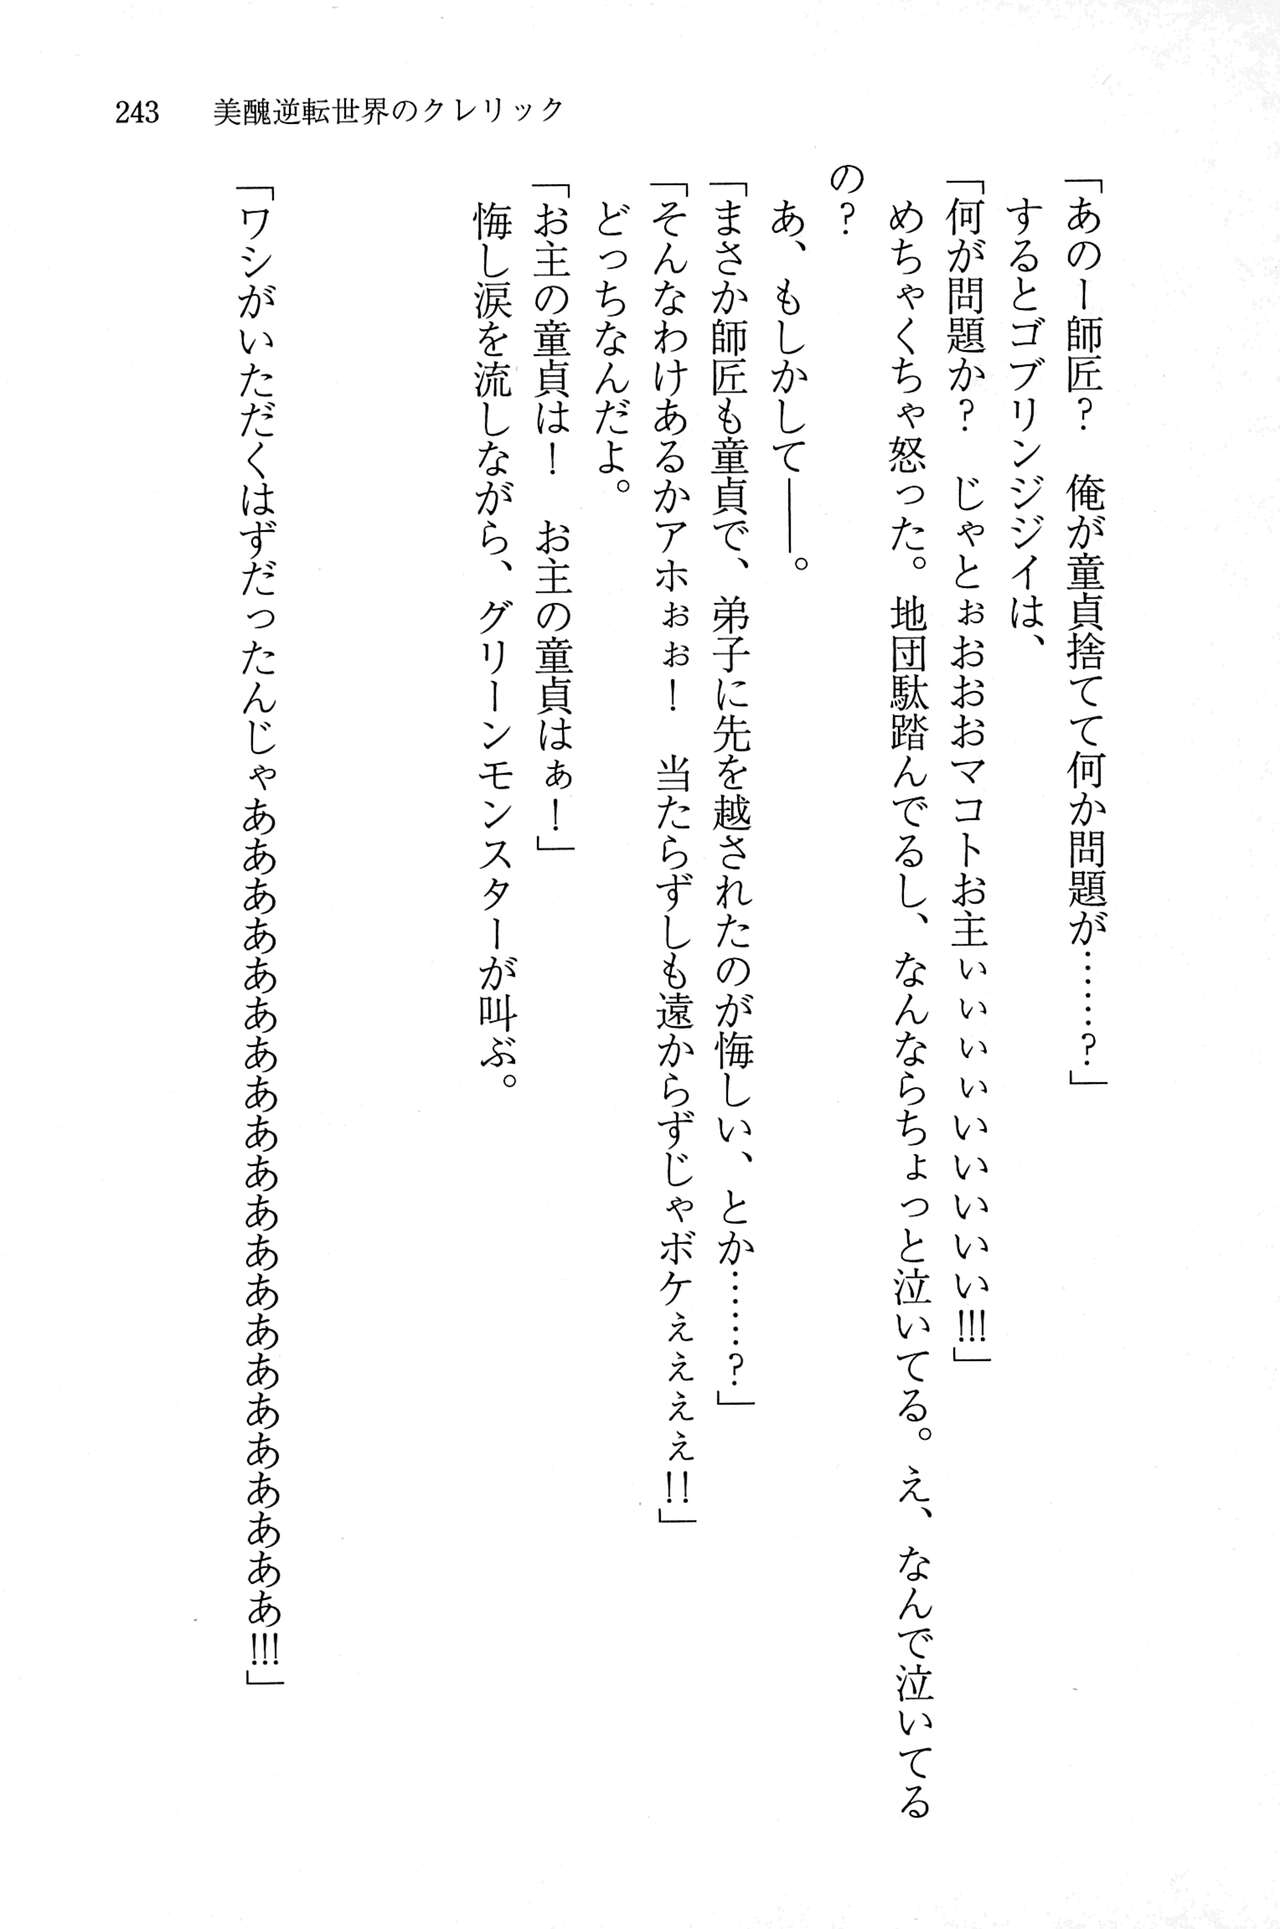 243　美醜逆転世界のクレリック
「あのー師匠？　俺が童貞捨てて何か問題が……？」
するとゴブリンジジイは、
「何が問題か？　じゃとぉおおおマコトお主ぃぃぃぃいいいいい!!!」
めちゃくちゃ怒った。地団駄踏んでるし、なんならちょっと泣いてる。え、なんで泣いてる
の？
あ、もしかして――。
「まさか師匠も童貞で、弟子に先を越されたのが悔しい、とか……？」
「そんなわけあるかアホぉぉ！　当たらずしも遠からずじゃボケぇぇぇぇ!!」
どっちなんだよ。
「お主の童貞は！　お主の童貞はぁ！」
悔し涙を流しながら、グリーンモンスターが叫ぶ。
「ワシがいただくはずだったんじゃあああああああああああああああああああああ!!!」